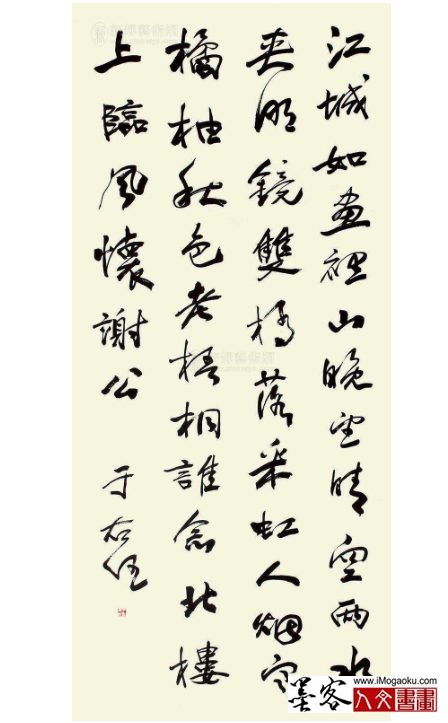 江城如畫裡山晚望晴空兩水
夾明鏡雙橋落采虹人烟寒
橘柚秋色老梧桐誰念北樓
上臨風懷謝公 于右任
墨客
www.iMogaoku.com
人文書畫